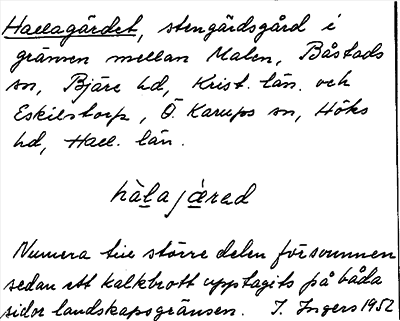 Hallagärdet, stengärdsgård i
gränsen mellan Malen, Båstads
sn, Bjäre hd, Krist. län. och
Eskilstorp, Ö. Karups sn, Höks
hd, Hall. län.
hàlajærad
Numera till större delen försvunnen
sedan ett kalkbrott upptagits på båda
sidor landskapsgränsen. I. Ingers 1952